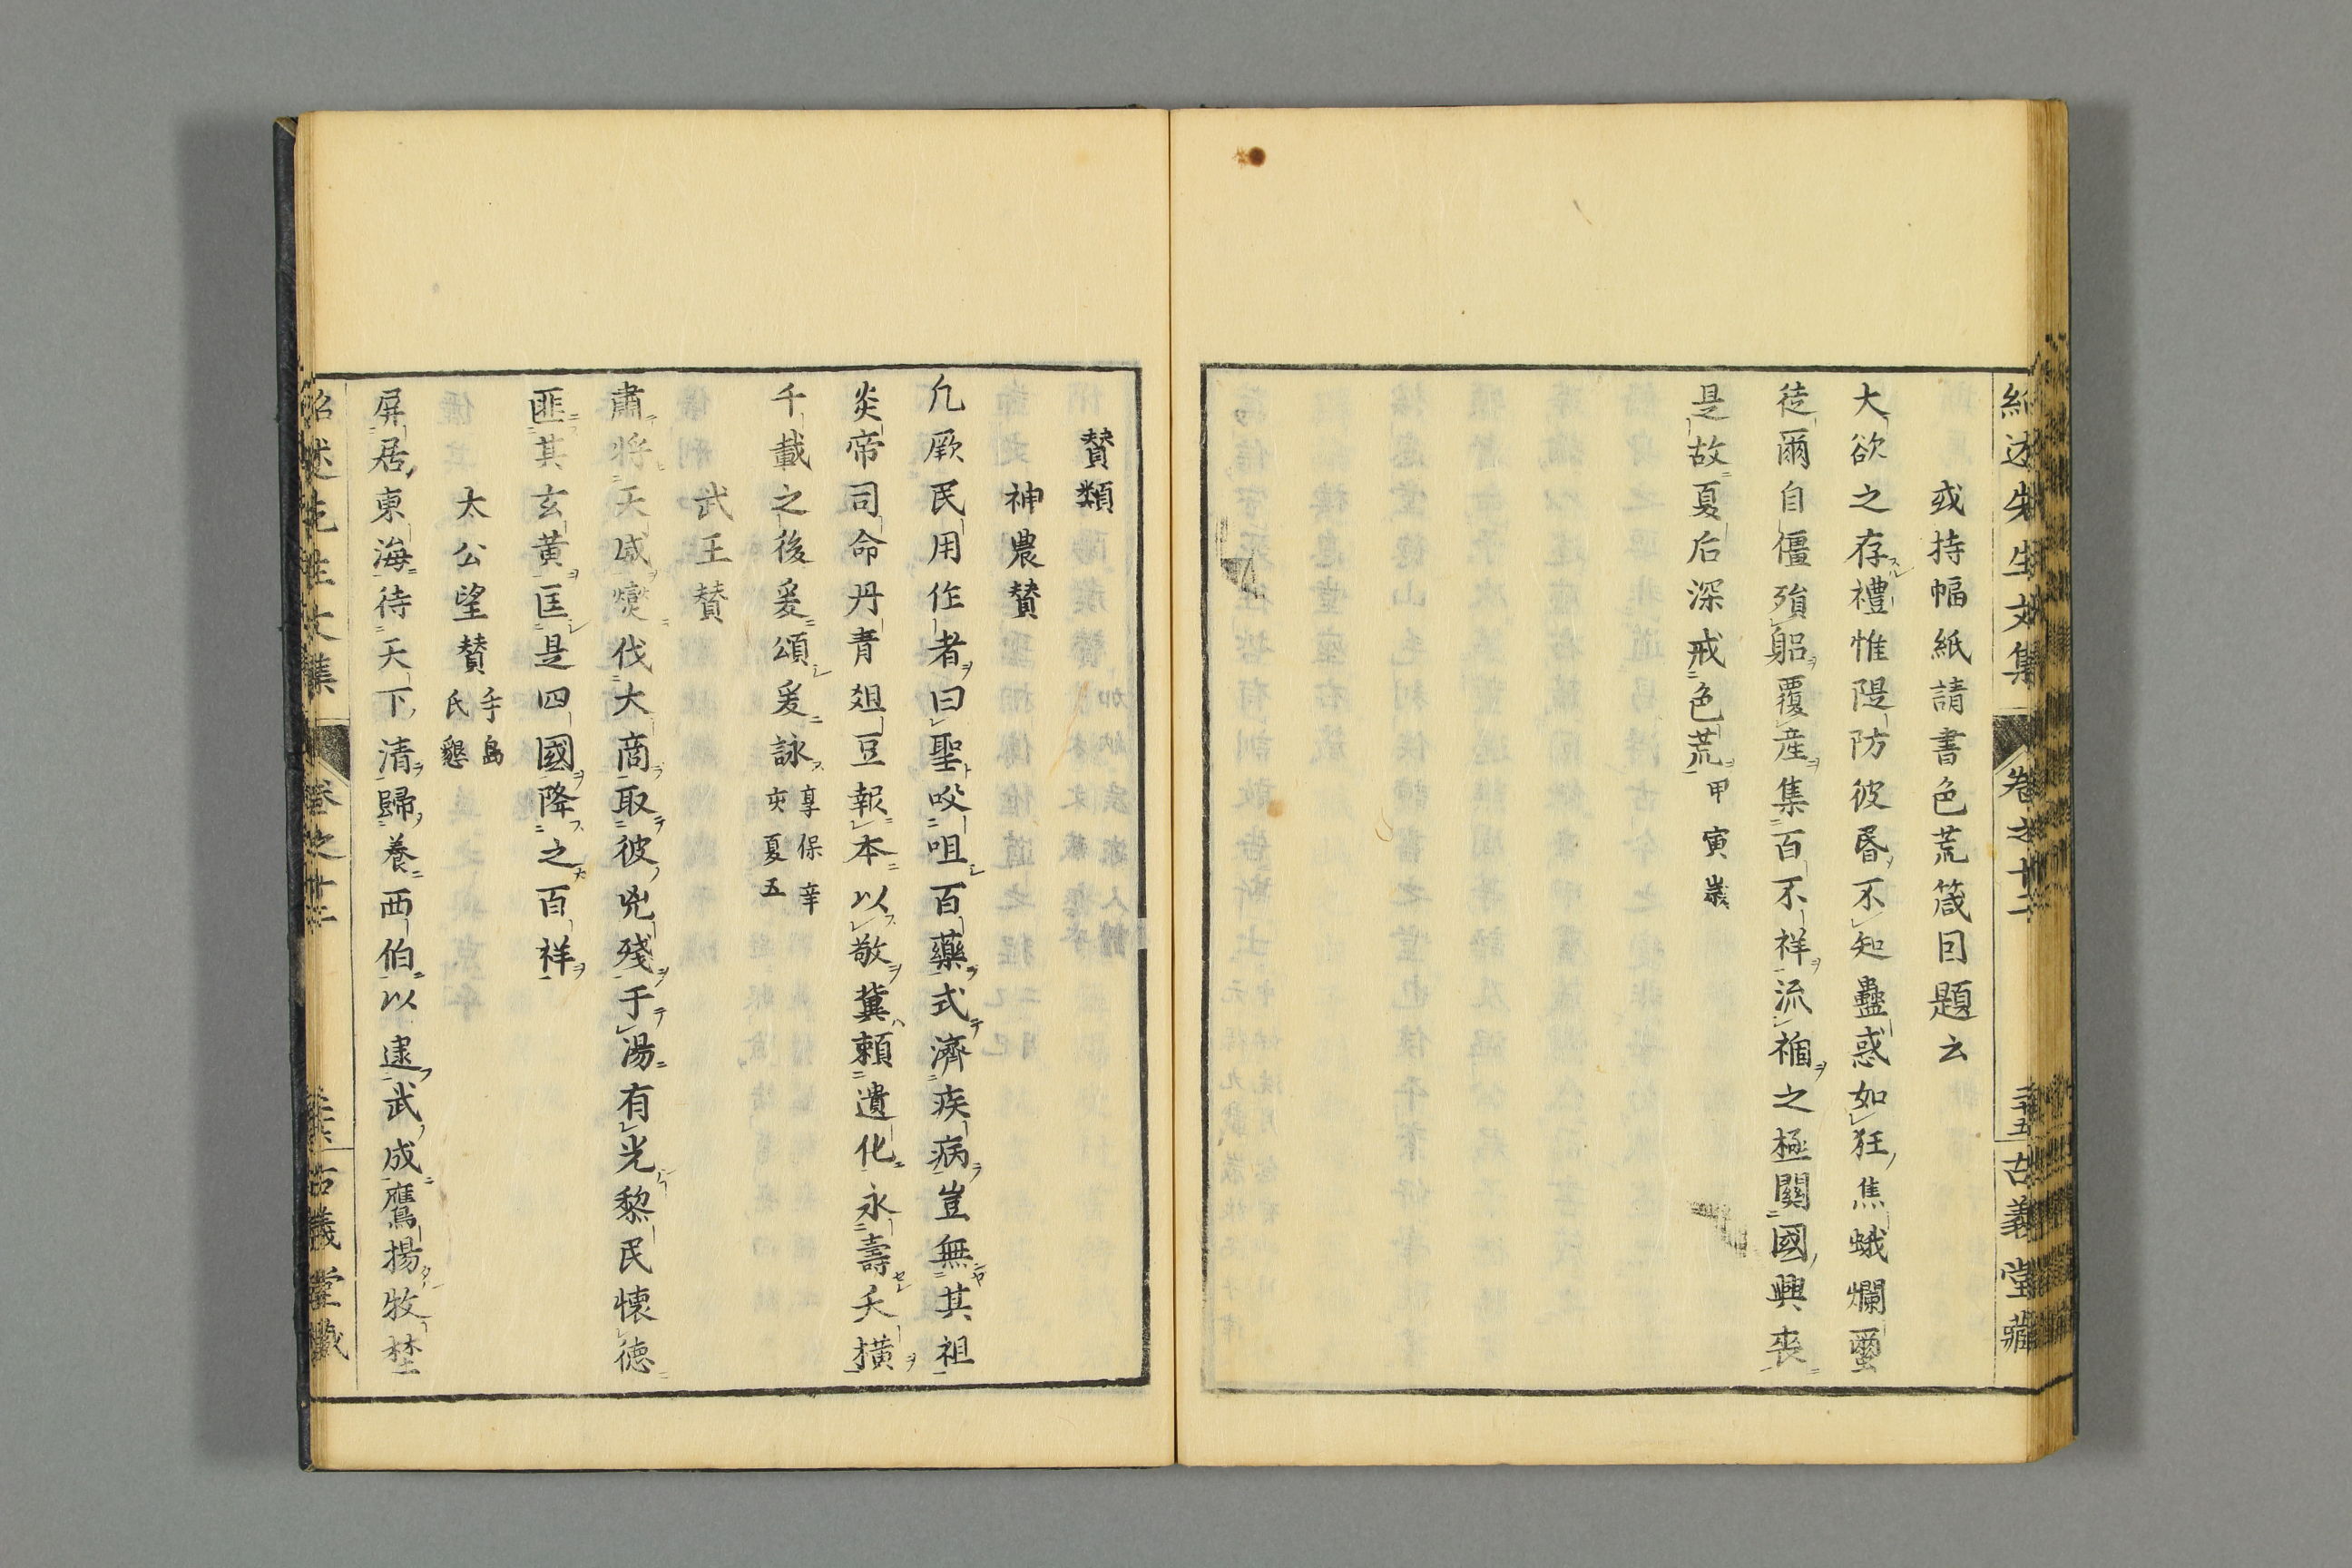 紹述先生文集　卷之十二　二十五　古義堂藏
或持幅紙請書色荒箴因題云
大欲之存禮惟隄防彼昏不知蠱惑如狂焦蛾爛蠒
徒爾自僵殞軀覆產集百不祥流禍之極關國興喪
是故夏后深戒色荒甲寅歲
贊類
神農贊
凢厥民用作者曰聖㕮咀百藥式濟疾病豈無其祖
炎帝司命丹青俎豆報本以敬冀賴遺化永壽夭橫
千載之後爰頌爰詠享保辛
亥夏五
武王贊
肅將天威爕伐大商取彼兇殘于湯有光黎民懷德
匪其玄黃匡是四國降之百祥
太公望贊手島
氏懇
屏居東海待天下清歸養西伯以逮武成鷹揚牧埜
紹述先生文集　卷之十二　古義堂藏